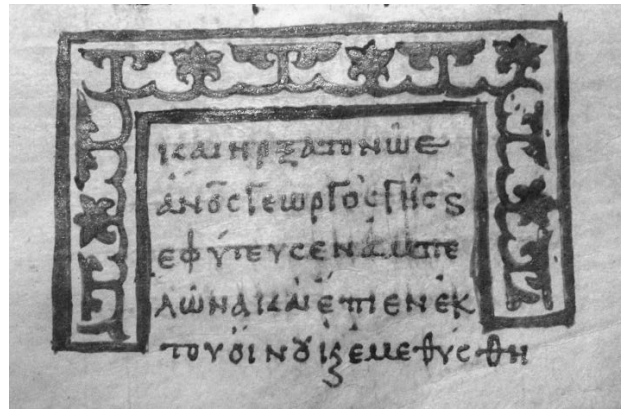 καιηρξατονωε
ἄνο̅ς γεωργὸς γῆς ϗ
εφύτευσεναμπε
λῶνακαιἔπιενἐκ
τουὄινουκεμεθύσθη